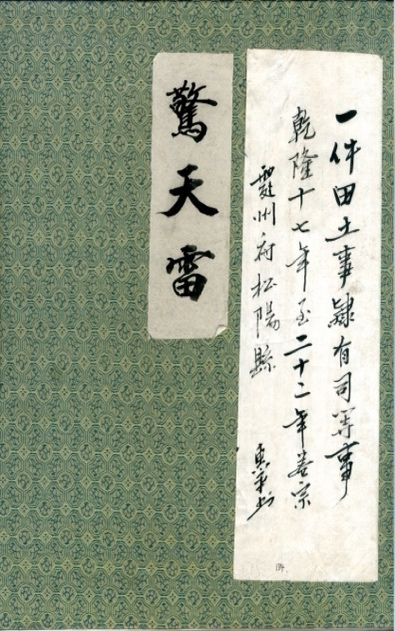 一件田土事隸有司等事
乾隆十七年至二十二年卷宗
處州府松陽縣
驚天雷